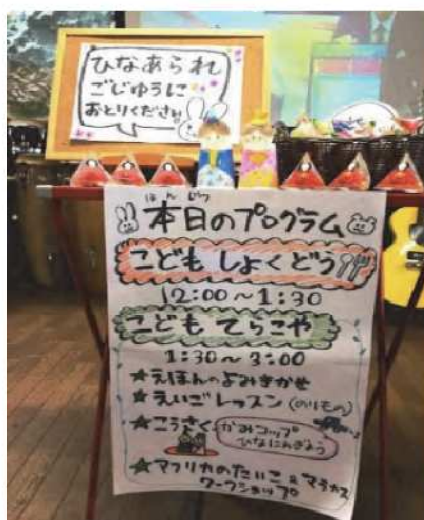 ひなあられ
ごじゆうに
おとりください。
ほんじつ
本日のプログラム
こどもしょくどう
12:00～1:30
こどもてらこや
1:30～3:00
★えほんのよみきかせ
★えいごレッスン(のりもの)
★こうさく かみコップ
ひなにんぎょう
★アフリカのたいこ&マラカス
ワークショップ